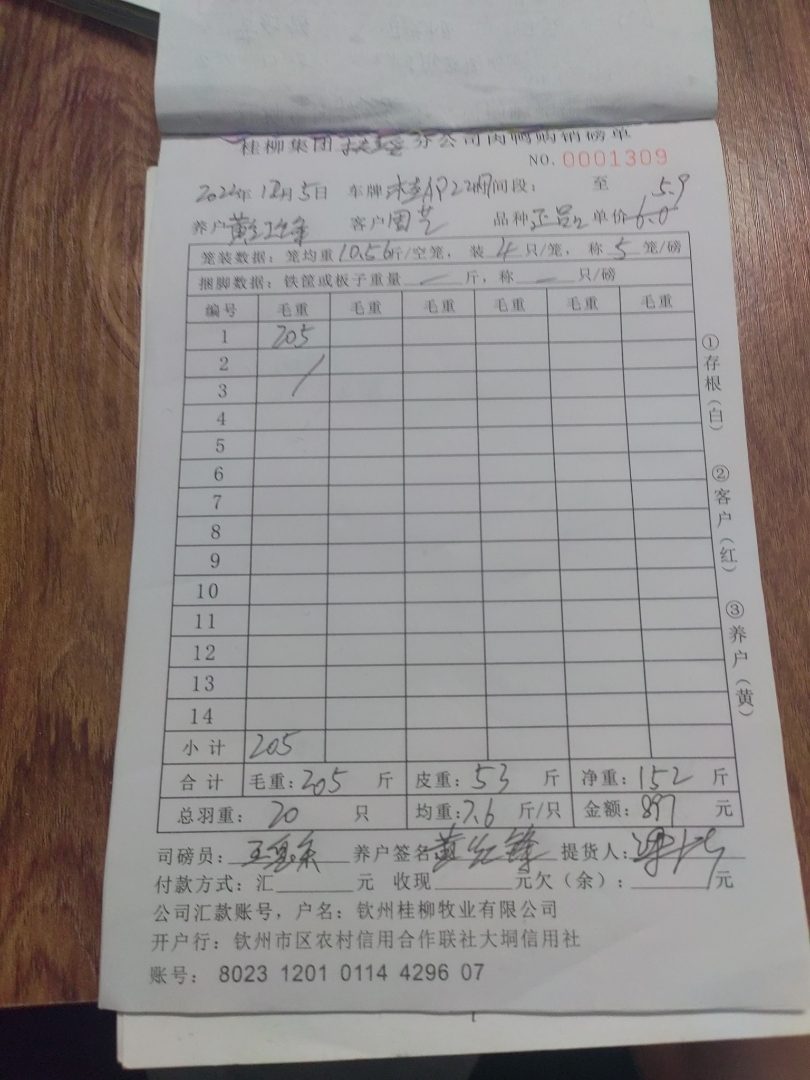 桂柳集团 分公司肉鸭购销磅单
NO. 0001309
年12月5日 车牌 时间段： 至 5.9
养户 黄红锋 客户 周芝 品种 正品 单价 6.0
笼装数据：笼均重 10.56 斤/空笼，装 4 只/笼，称 5 笼/磅
捆脚数据：铁筐或板子重量 — 斤，称 — 只/磅
编号 毛重 毛重 毛重 毛重 毛重 毛重
1 205
2
3
4
5
6
7
8
9
10
11
12
13
14
小计 205
合计 毛重：205 斤 皮重：53 斤 净重：152 斤
总羽重： 20 只 均重：7.6 斤/只 金额：897 元
司磅员： 养户签名 黄红锋 提货人：
付款方式：汇 元 收现 元欠（余）： 元
公司汇款账号，户名：钦州桂柳牧业有限公司
开户行：钦州市区农村信用合作联社大垌信用社
账号： 8023 1201 0114 4296 07
①存根（白）
②客户（红）
③养户（黄）